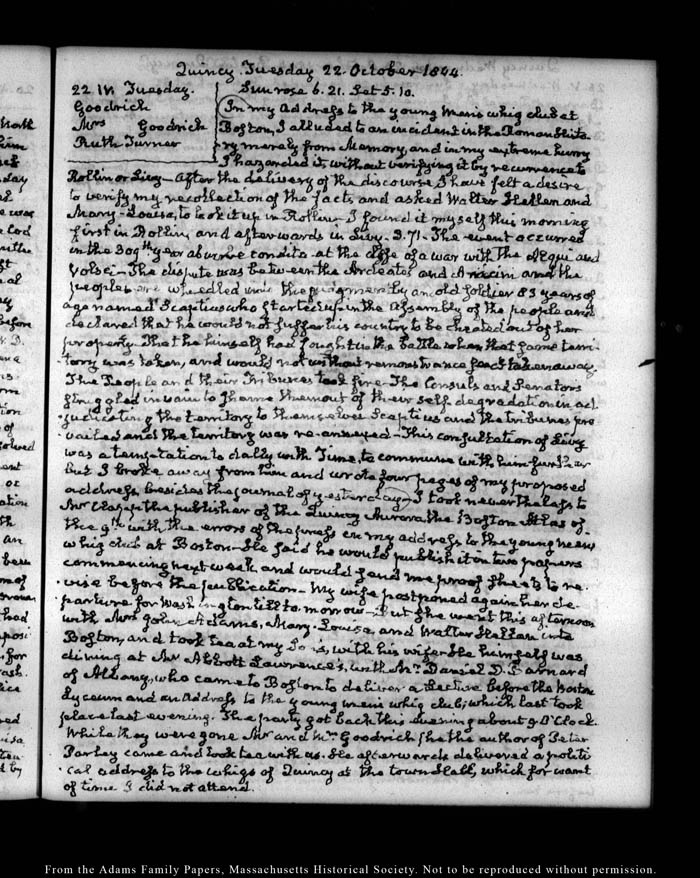 Quincy Tuesday 22. October 1844.
22 IV Tuesday.
Goodrich
Mrs Goodrich
Ruth Turner
Sun rose 6. 21. Set 5. 10.
In my address to the young men's whig club at
Boston, I alluded to an incident in the Roman histo-
ry merely from memory, and in my extreme hurry
I hazarded it, without verifying it by recurrence to
Rollin or Livy— After the delivery of the discourse I have felt a desire
to verify my recollection of the facts, and asked Walter Hellen and
Mary-Louisa, to look it up in Rollin— I found it myself this morning
first in Rollin, and afterwards in Livy. 3. 71. The event occurred
in the 309th year ab urbe condita at the close of a war with the Aequi and
Volsci— The dispute was between the Ardeates and Aricini and the
people were wheedled into the judgment by an old soldier 83 years of
age named Scaptius who started up in the assembly of the people and
declared that he would not suffer his country to be cheated out of her
property. That he himself had fought in the battle when that same terri-
tory was taken, and would not without remonstrance see it taken away.
The People and their Tribunes took fire— The Consuls and Senators
struggled in vain to shame them out of their self degradation in ad-
judicating the territory to themselves Scaptius and the tribunes pre
vailed and the territory was re-annexed— This consultation of Livy
was a temptation to dally with Time, to commune with him further
but I broke away from him and wrote four pages of my proposed
address, besides the journal of yesterday— I took nevertheless to
Mr Clapp the publisher of the Quincy Aurora the Boston Atlas of
the 9th with the errors of the press in my address to the young men's
whig club at Boston— He said he would publish it in two papers
commencing next week and would send me proof sheets to re-
vise before the publication— My wife postponed again her de-
parture for Washington till to-morrow— But she went this afternoon
with Mrs John Adams, Mary-Louisa, and Walter Hellen into
Boston, and took tea at my Son's, with his wife— He himself was
dining at Mr Abbott Lawrence's, with Mr Daniel D. Barnard
of Albany, who came to Boston to deliver a Lecture before the Boston
Lyceum and an address to the young men's whig club; which last took
place last evening. The party got back this evening about 9 O'Clock.
While they were gone Mr and Mrs Goodrich the author of Peter
Parley came and took tea with us. He afterwards delivered a politi
cal address to the whigs of Quincy at the town Hall, which for want
of time I did not attend.
From the Adams Family Papers, Massachusetts Historical Society. Not to be reproduced without permission.